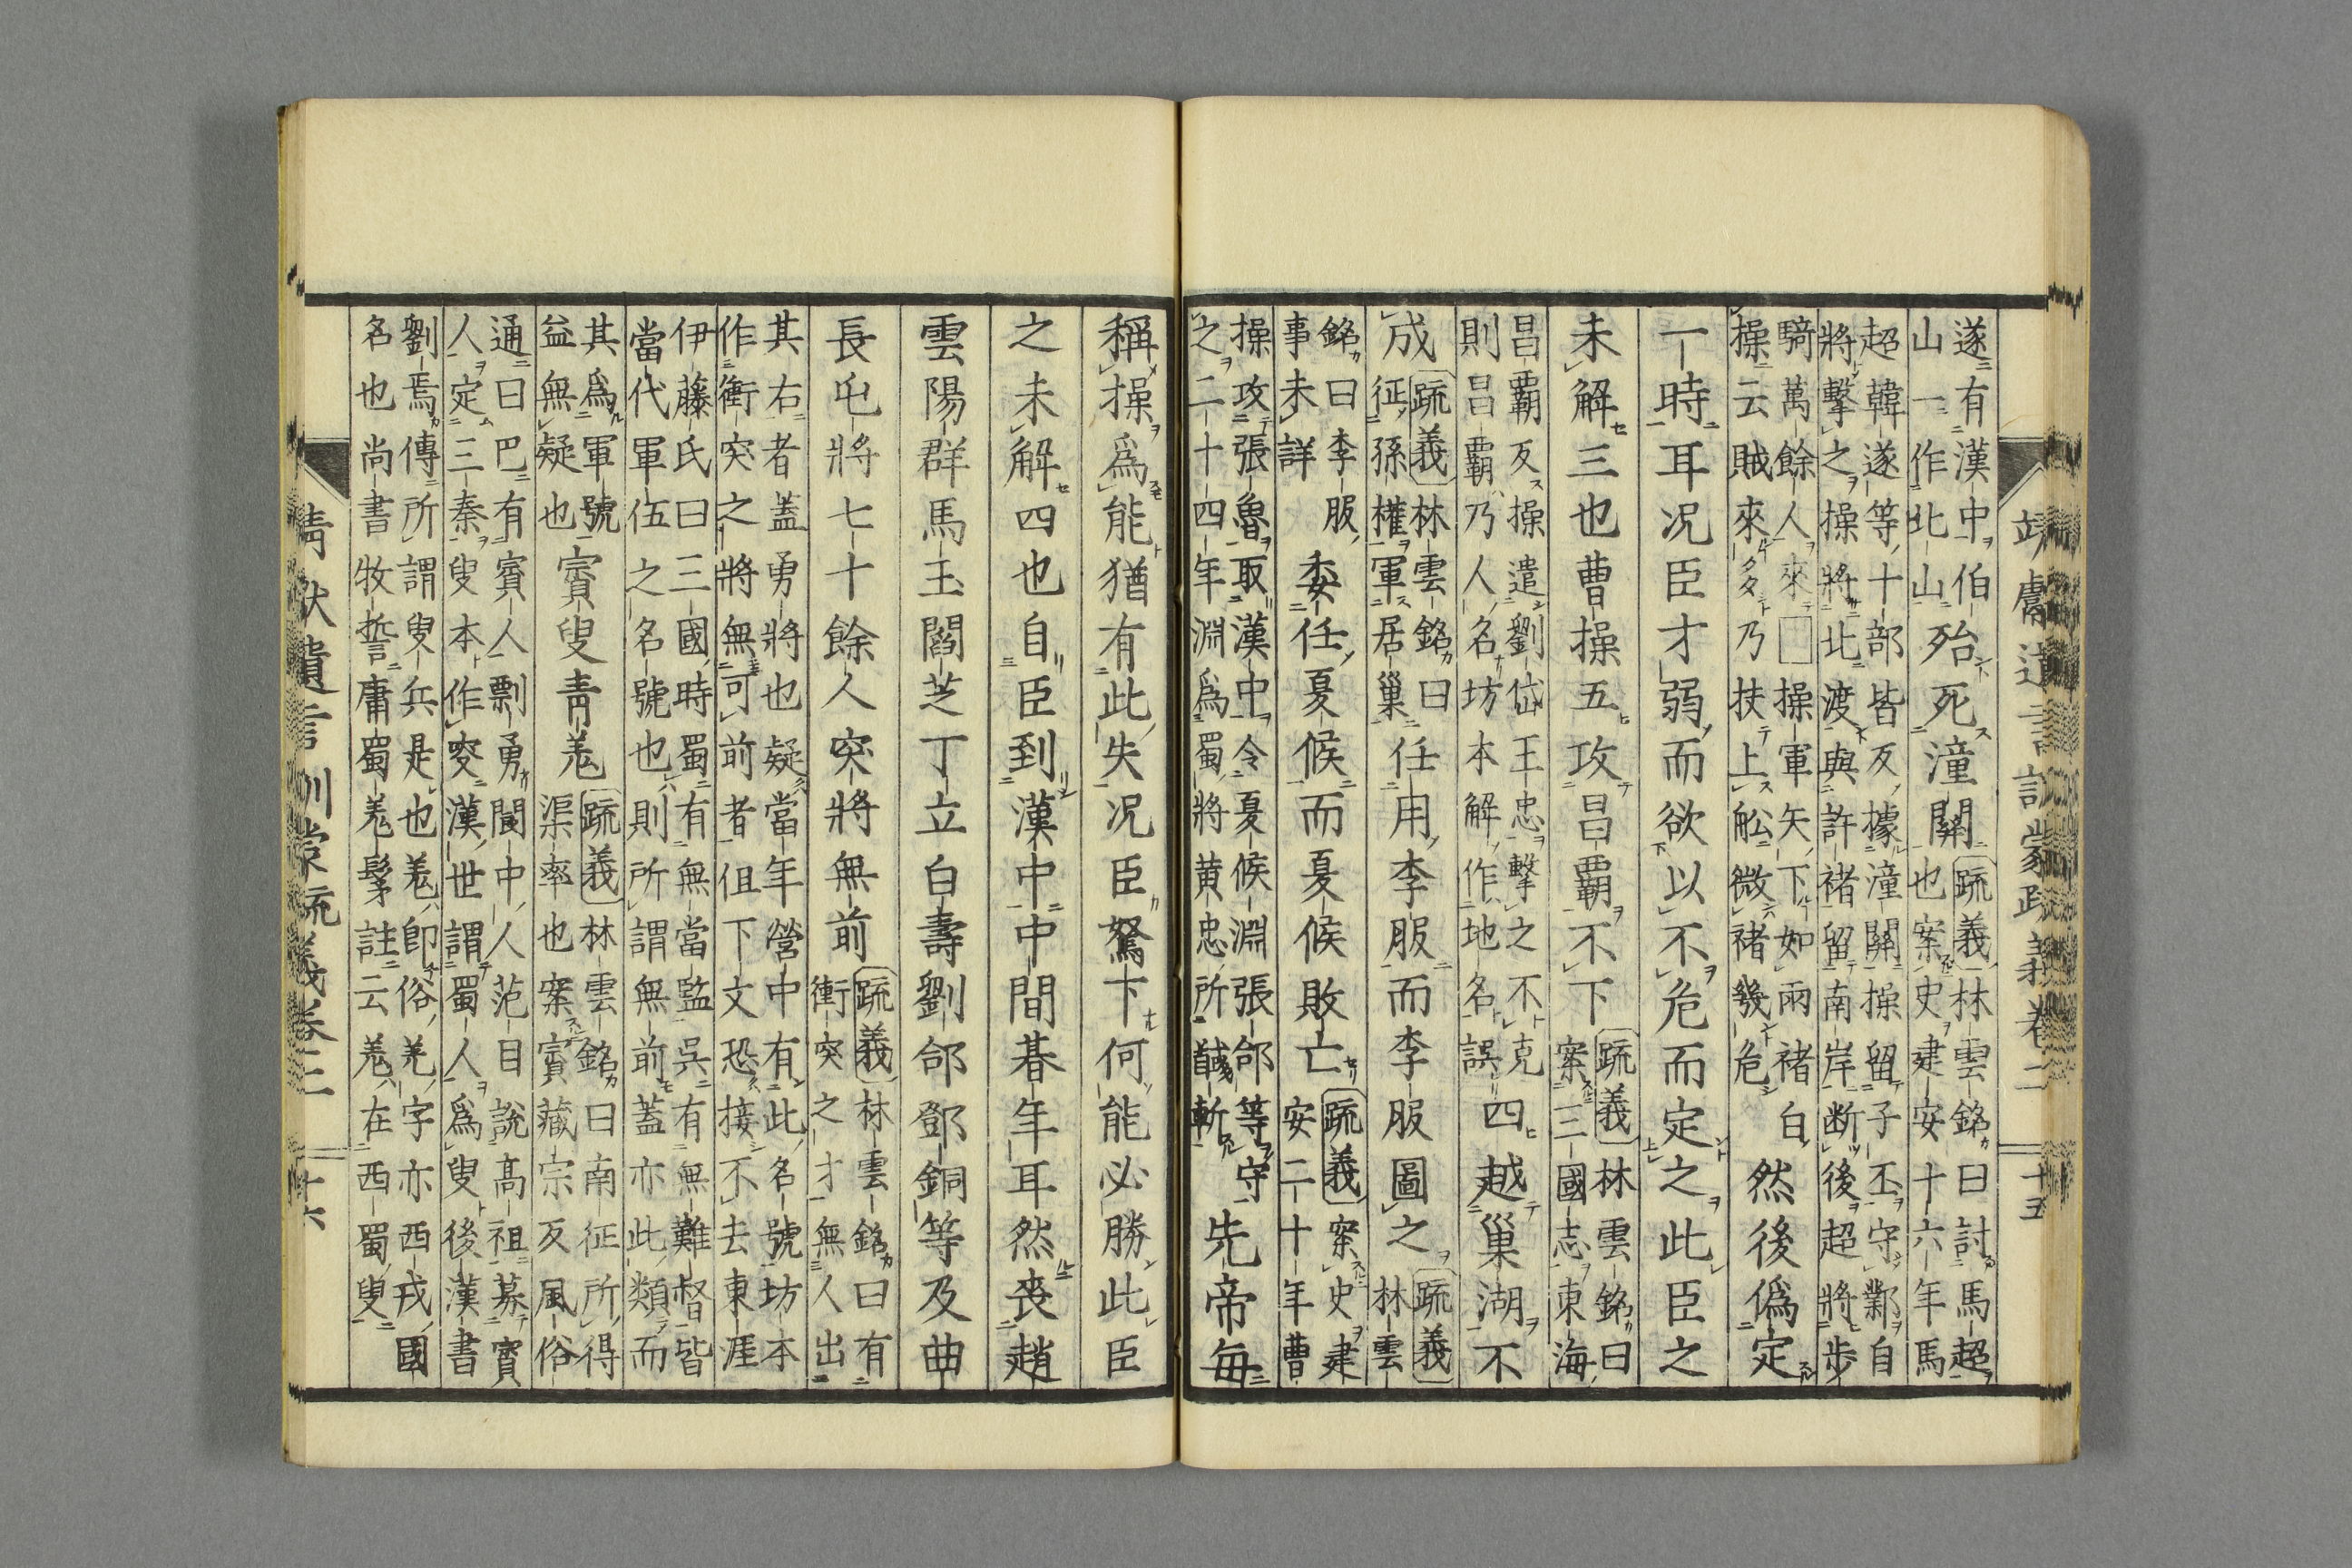 靖獻遺言訓蒙疏義卷二 十五
遂有漢中伯
山一作北山
殆死潼關
疏義林雲銘曰討馬超
也案史建安十六年馬
超韓遂等十部皆反據潼關操留子丕守鄴自
將擊之操將北渡與許褚留南岸断後超將步
騎萬餘人來□操軍矢下如雨褚白
操云賊來多乃扶上舩微褚幾危
然後僞定
一時耳况臣才弱而欲以不危而定之此臣之
未解三也曹操五攻昌覇不下
疏義林雲銘曰
案三國志東海
昌覇反操遣劉岱王忠擊之不克
則昌覇乃人名坊本解作地名誤
四越巢湖不
成
疏義林雲銘曰
征孫權軍居巢
任用李服而李服圖之
疏義
林雲
銘曰李服
事未詳
委任夏候而夏候敗亡
疏義案史建
安二十年曹
操攻張魯取漢中令夏候淵張郃等守
之二十四年淵爲蜀將黄忠所馘斬
先帝毎
稱操爲能猶有此失况臣駑下何能必勝此臣
之未解四也自臣到漢中中間朞年耳然喪趙
雲陽群馬玉閻芝丁立白壽劉郃鄧銅等及曲
長屯將七十餘人突將無前
疏義林雲銘曰有
衝突之才無人出
其右者蓋勇將也疑當年營中有此名號坊本
作衝突之將無可前者但下文恐接不去東涯
伊藤氏曰三國時蜀有無當監吳有無難督皆
當代軍伍之名號也則所謂無前蓋亦此類而
其爲軍號
益無疑也
賨叟青羌
疏義林雲銘曰南征所得
渠率也案賨藏宗反風俗
通曰巴有賨人剽勇閬中人范目說高祖募賨
人定三秦叟本作㕟漢世謂蜀人爲叟後漢書
劉焉傳所謂叟兵是也羌即俗羌字亦西戎國
名也尚書牧誓庸蜀羌髳註云羌在西蜀叟
靖獻遺言訓蒙疏義卷二 十六